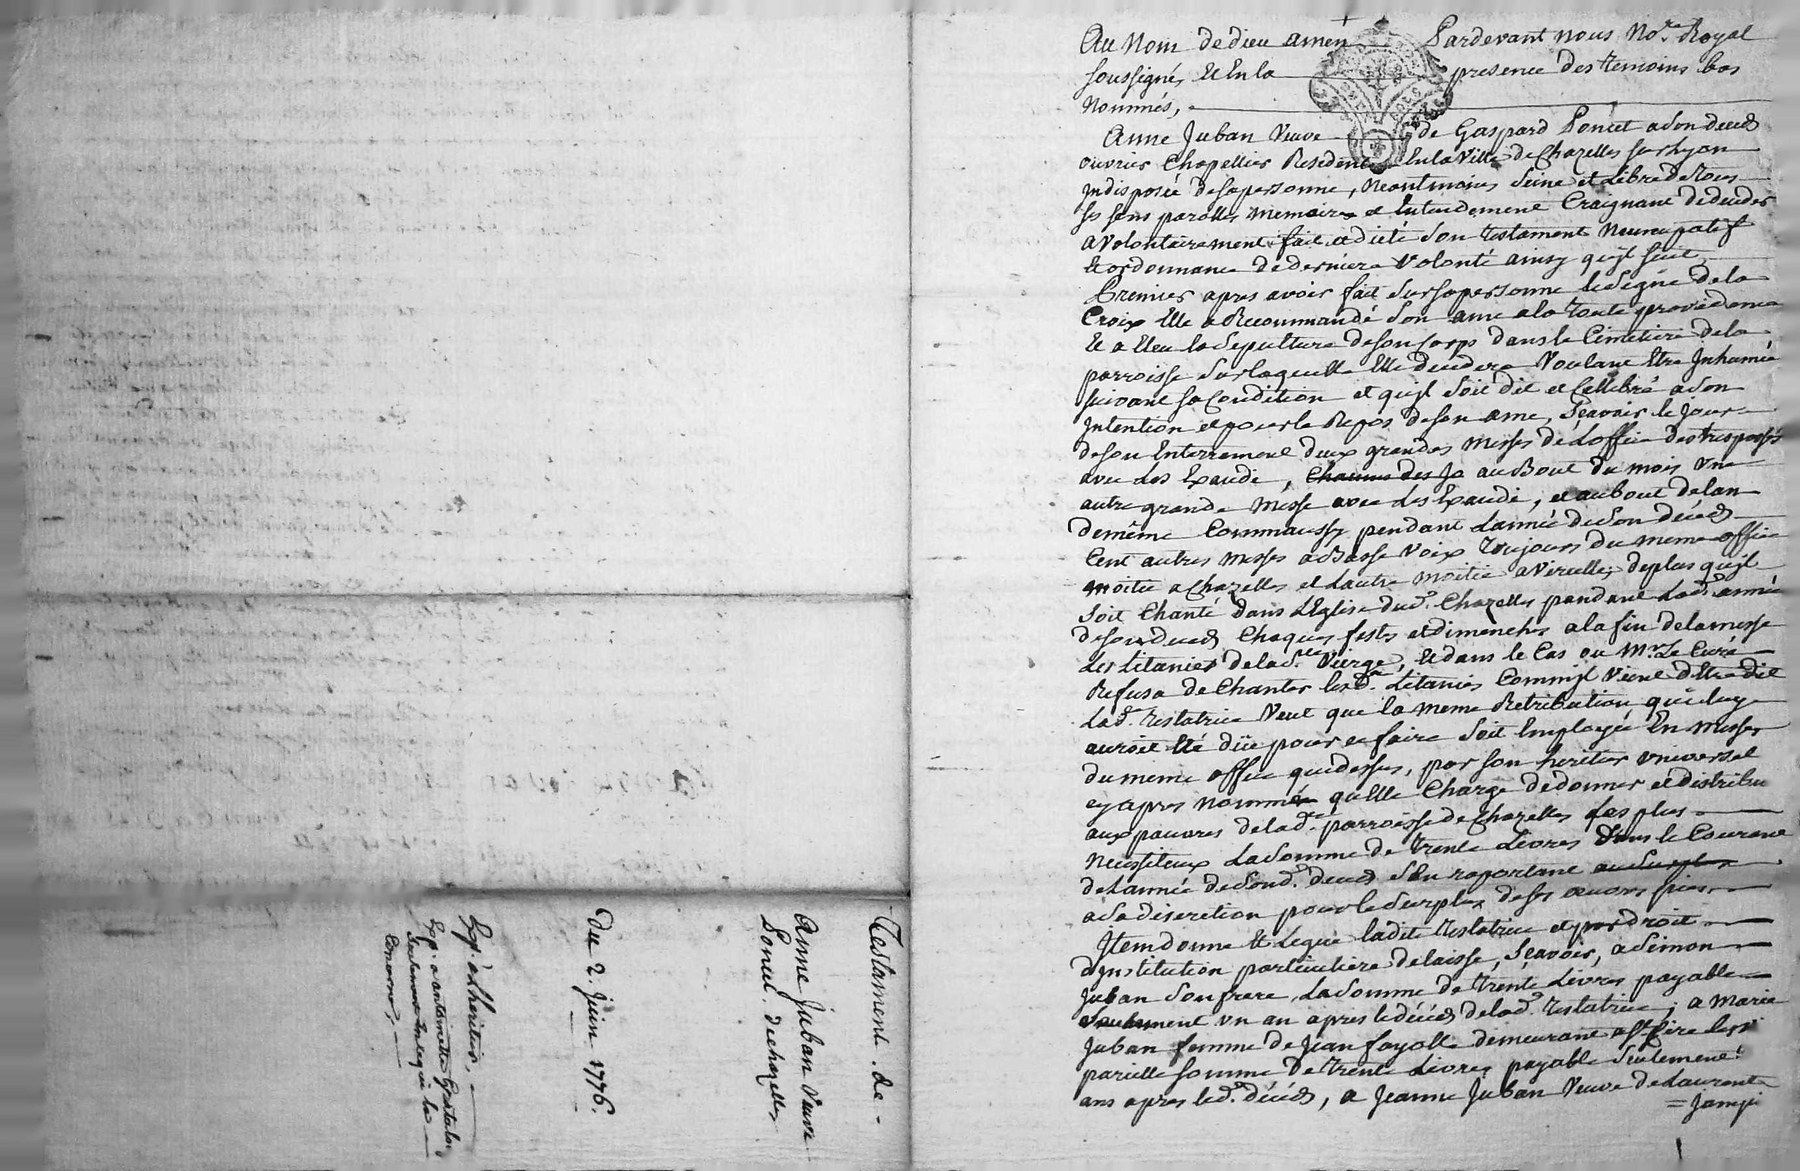 Testament de
Anne Juban Veuve
Poncet dechazelles
du 2. juin 1776.
Exp. à L'heritier,
Exp. a antoinette
Seulement
Au Nom de dieu amen Pardevant nous No.re Royal
soussigné, Et En la presence des temoins bas
Nommés,
Anne Juban Veuve de Gaspard Poncet a son decéd
ouvrier Chapellier Residente En la Ville de Chazelles sur Lyon
Indisposée de sa personne, Neantmoins Seine et Libre de tous
ses sens parolles memoire et Entendement Craignant de deceder
a Volontairement fait et dicté Son testament Nuncupatif
Et ordonnance de derniere Volonté ainsy quijl suit,
Premier apres avoir fait Sur sa personne le Signe de la
Croix Elle a Recommandé Son ame a la toute providence
Et a Eleu la Sepulture de son Corps dans le Cimetiere de la
parroisse Sur laquelle Elle decedera Voulant Etre Inhumée
suivant sa Condition et quijl Soit dit et Cellebré a Son
Intention et pour le Repos de son ame, Scavoir le Jour
de son Enterrement deux grandes Messes de L'office des trespassés
avec des Exaudi, au Bout du mois Vne
autre grande Messe avec des Exaudi, et au bout de lan
de même Comm'aussy pendant L'année de Son décéd
Cent autres Messes a Basse Voix toujours du meme office
moitié a Chazelles et L'autre moitié a Viricelles, de plus quijl
Soit Chanté dans L'Eglise dud. Chazelles pendant Lad. année
de son deced Chaques festes et dimenches a la fin de la messe
Les Litanies de la s.te Vierge, Et dans le Cas ou Mr. Le Curé
Refusa de Chanter lesd. Litanies Commijl Vient d'Etre dit
Lad. testatrice Veut que la meme Retribution qui luy
auroit Eté düe pour ce faire Soit Employée En Messes
du meme office que dessus, par son heritier Vniversel
cy apres nommé quElle Charge de donner et distribuer
aux pauvres de lad. parroisse de Chazelles Les plus
Necessiteux La Somme de trente Livres dans le Courant
de L'année de Sond. deced S'En raportant
a Sa discretion pour le Surplus de ses œuvres pies,
Item donne Et Legue ladite testatrice et par droit
d'Institution particuliere delaisse, Scavoir, a Simon
Juban Son frere, La Somme de trente Livres payable
Seulement vn an apres le décéd de lad. testatrice, a Marie
Juban femme de Jean fayolle demeurant a
pareille somme de trente Livres payable Seulement
ans apres led. décéd, a Jeanne Juban Veuve de Laurent